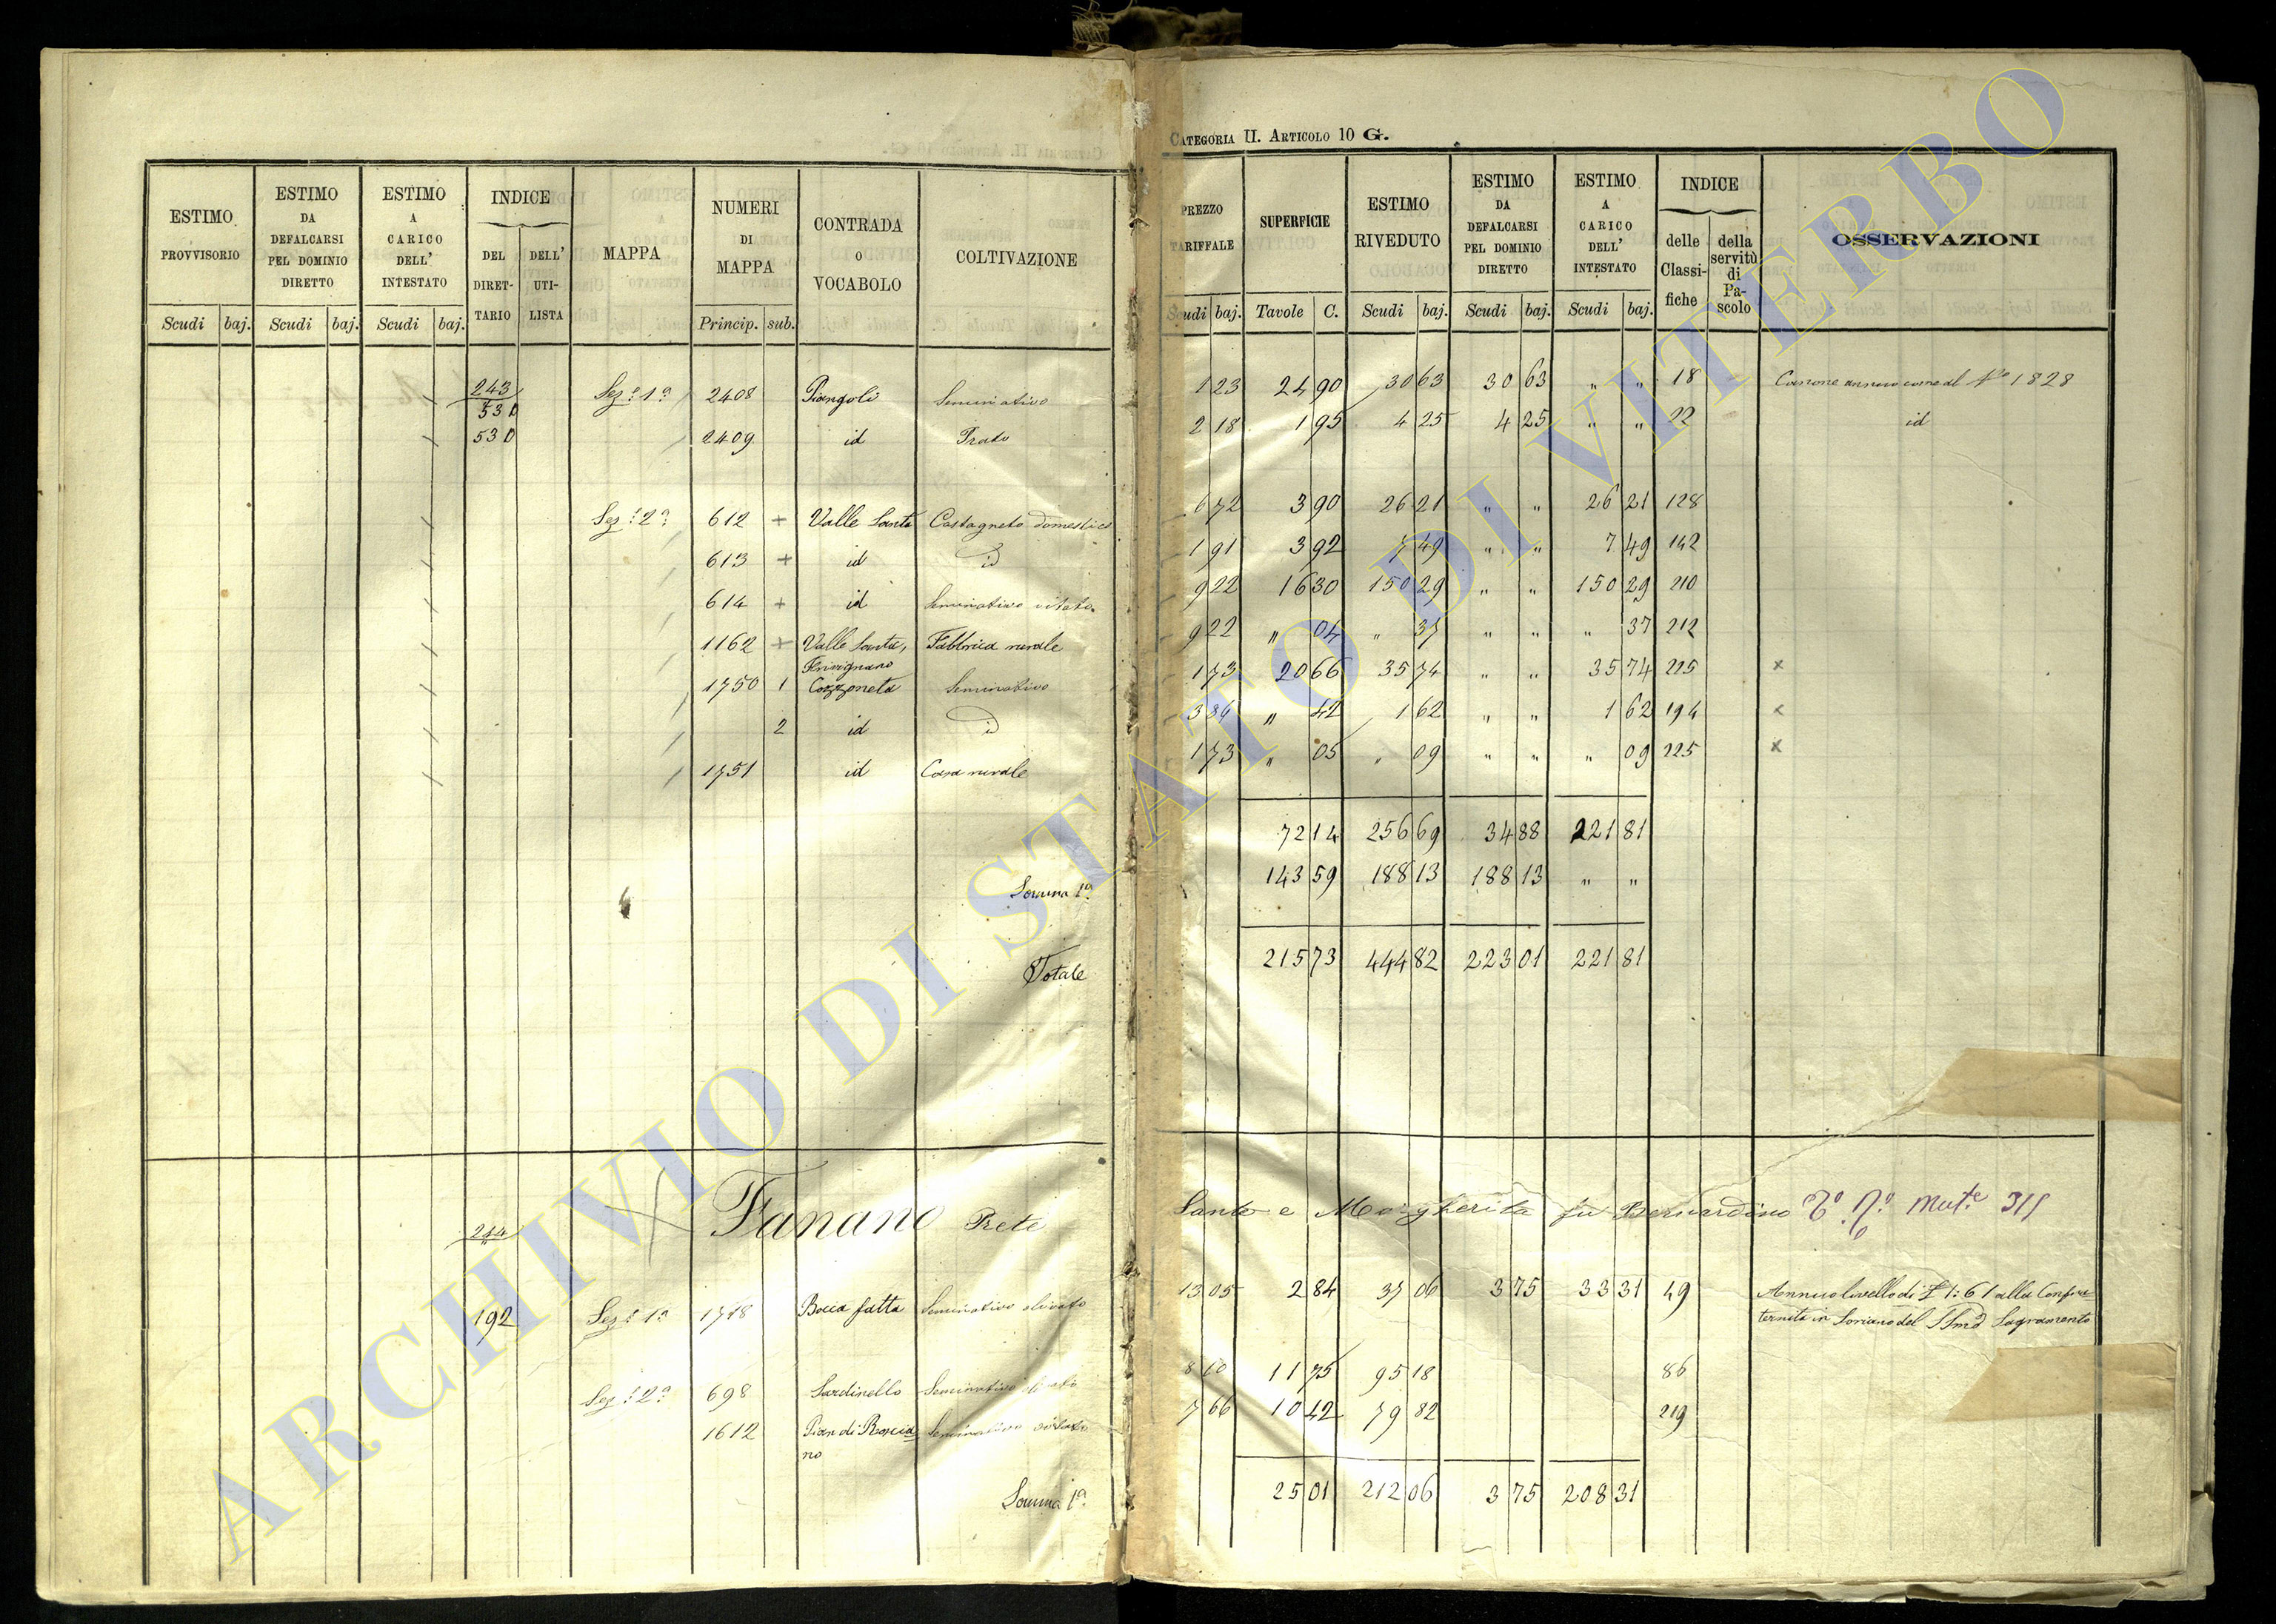 CATEGORIA II. ARTICOLO 10 G.
ESTIMO PROVVISORIO
ESTIMO DA DEFALCARSI PEL DOMINIO DIRETTO
ESTIMO A CARICO DELL' INTESTATO
INDICE
DEL DIRET-TARIO
DELL' UTI-LISTA
MAPPA
NUMERI DI MAPPA
CONTRADA O VOCABOLO
COLTIVAZIONE
PREZZO TARIFFALE
SUPERFICIE
ESTIMO RIVEDUTO
ESTIMO DA DEFALCARSI PEL DOMINIO DIRETTO
ESTIMO A CARICO DELL' INTESTATO
INDICE
delle Classi-fiche
della servitù di Pa-scolo
OSSERVAZIONI
Scudi baj. Scudi baj. Scudi baj. Princip. sub. Scudi baj. Tavole C. Scudi baj. Scudi baj. Scudi baj.
243
530 Sez.e 1a 2408 Piangoli Seminativo 1 23 24 90 30 63 30 63 " " 18 Canone annuo come al No 1828
530 2409 id Prato 2 18 1 95 4 25 4 25 " " 22 id
Sez.e 2a 612 + Valle Santa Castagneto domestico 6 72 3 90 26 21 " " 26 21 128
613 + id id 1 91 3 92 7 49 " " 7 49 142
614 + id Seminativo vitato 9 22 16 30 150 29 " " 150 29 210
1162 + Valle Santa, Fabbrica rurale 9 22 " 04 " 37 " " " 37 212
1750 1 Cozzoneta Seminativo 1 73 20 66 35 74 " " 35 74 225 x
2 id id 3 86 " 42 1 62 " " 1 62 194 x
1751 id Casa rurale 1 73 " 05 " 09 " " " 09 225 x
72 14 256 69 34 88 221 81
Somma 1a 143 59 188 13 188 13 " "
Totale 215 73 444 82 223 01 221 81
244 Fanano Prete Santo e Margherita fu Bernardino Mut.e 311
192 Sez.e 1a 1778 Bocca fatta Seminativo olivato 13 05 2 84 37 06 3 75 33 31 49 Annuo livello di £ 1:61 alla Confra
ternita in Soriano del SSmo Sagramento
Sez.e 2a 698 Sardinello Seminativo olivato 8 10 11 75 95 18 86
1612 Pian di Roscia Seminativo vitato 7 66 10 42 79 82 219
no
Somma 1a 25 01 212 06 3 75 208 31
ARCHIVIO DI STATO DI VITERBO